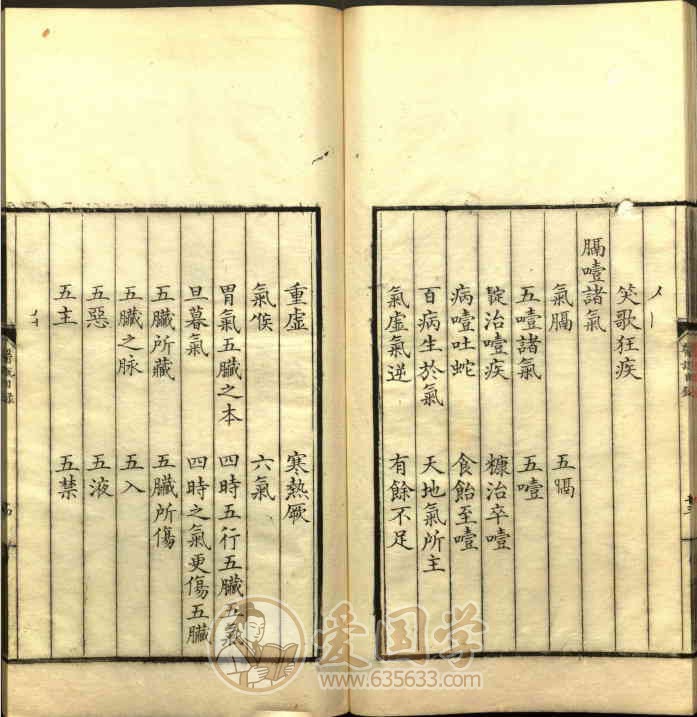 笑歌狂疾
膈噎諸氣
氣膈 五膈
五噎諸氣 五噎
治噎疾 糠治卒噎
病噎吐蛇 食飴至噎
百病生於氣 天地氣所主
氣虛氣逆 有餘不足
重虛 寒熱厥
氣候 六氣
胃氣五臟之本 四時五行五臟五氣
旦暮氣 四時之氣更傷五臟
五臟所藏 五臟所傷
五臟之脉 五入
五惡 五液
五主 五禁
目錄
爱国学
www.635633.com